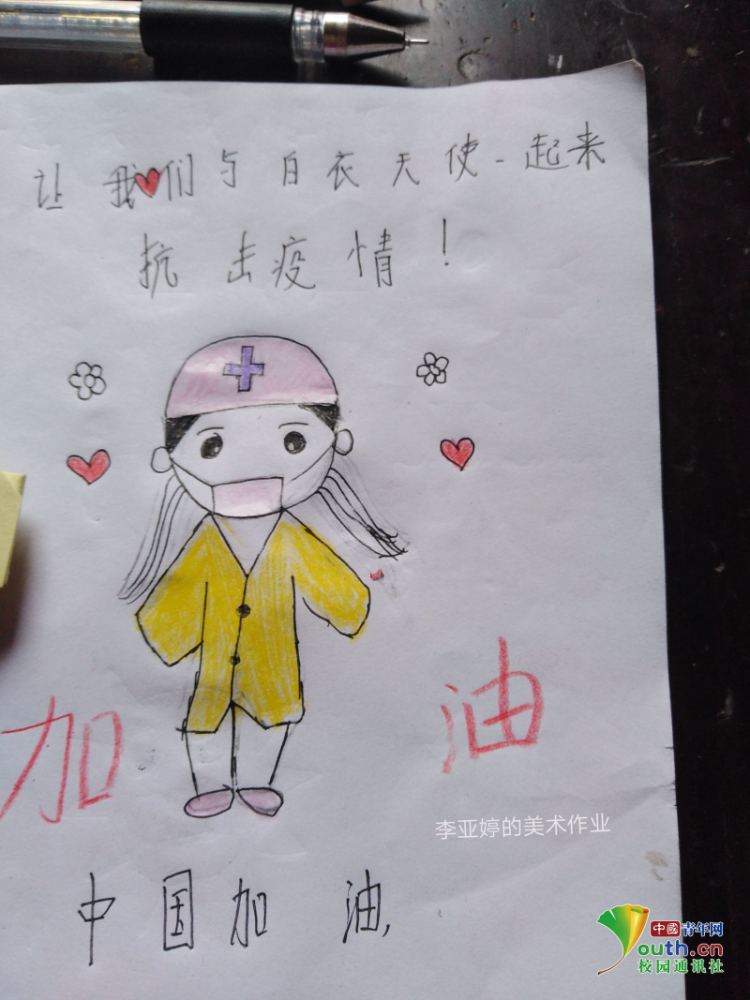 让我们与白衣天使一起来
抗击疫情！
加油
李亚婷的美术作业
中国加油.
中国青年网
youth.cn
校园通讯社